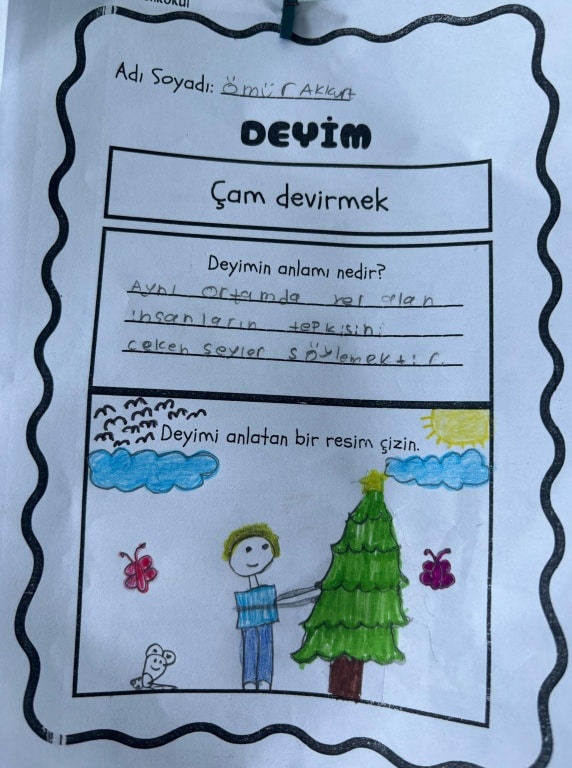 Adı Soyadı: Ömür Akkurt
DEYİM
Çam devirmek
Deyimin anlamı nedir?
Aynı ortamda yer alan
insanların tepkisini
çeken şeyler söylemektir.
Deyimi anlatan bir resim çizin.